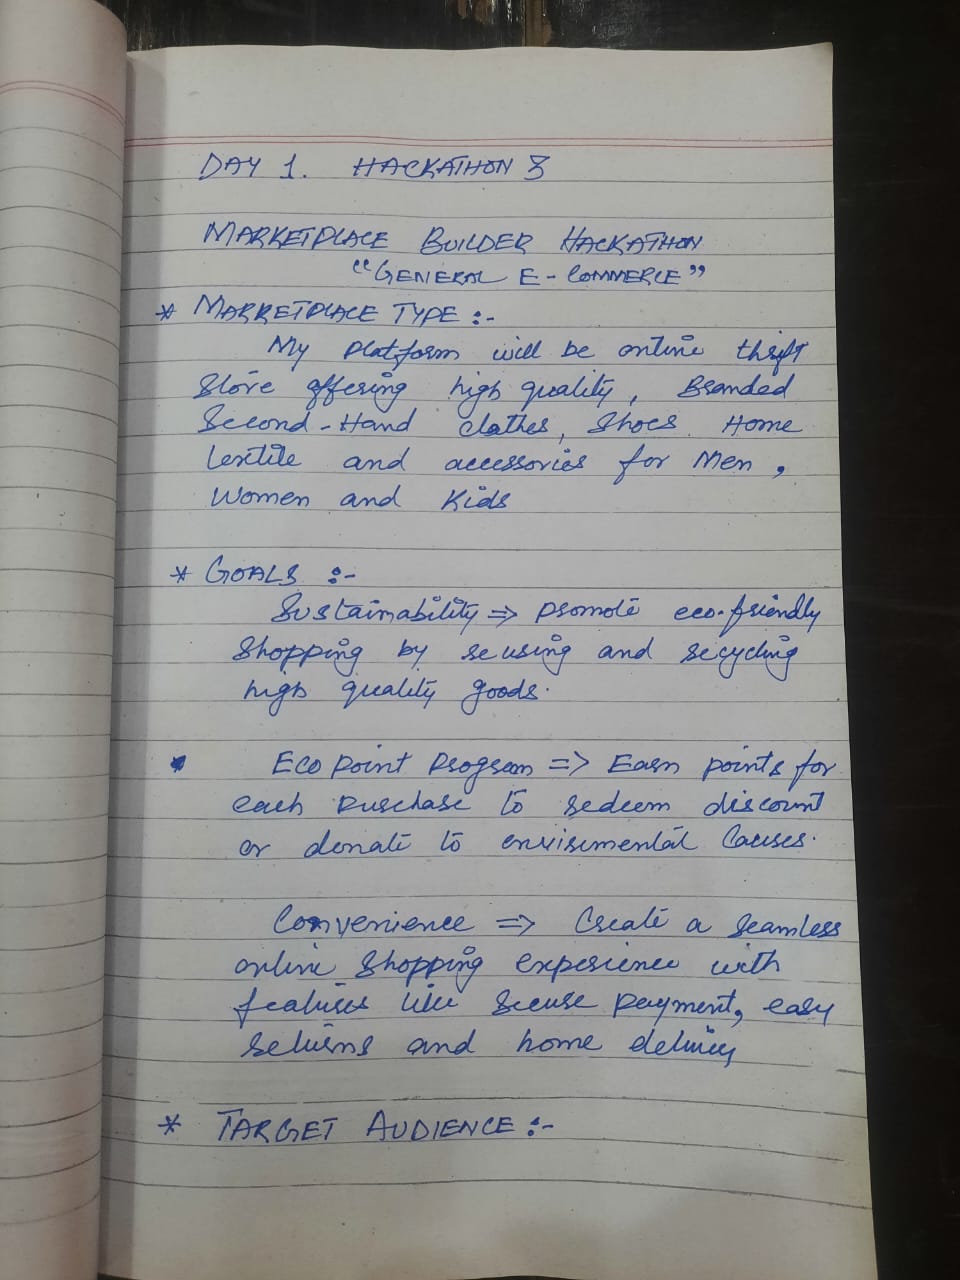 DAY 1. HACKATHON 3
MARKETPLACE BUILDER HACKATHON
"GENERAL E-COMMERCE"
* MARKETPLACE TYPE :-
My platform will be online thrift
Store offering high quality, Branded
Second-Hand clothes, Shoes Home
textile and accessories for Men,
Women and Kids
* GOALS :-
Sustainability => promote eco-friendly
Shopping by reusing and recycling
high quality goods.
Eco point program => Earn points for
each purchase to redeem discount
or donate to envirimental Causes.
Convenience => Create a Seamless
online Shopping experience with
features like Secure payment, easy
returns and home delivery
* TARGET AUDIENCE :-